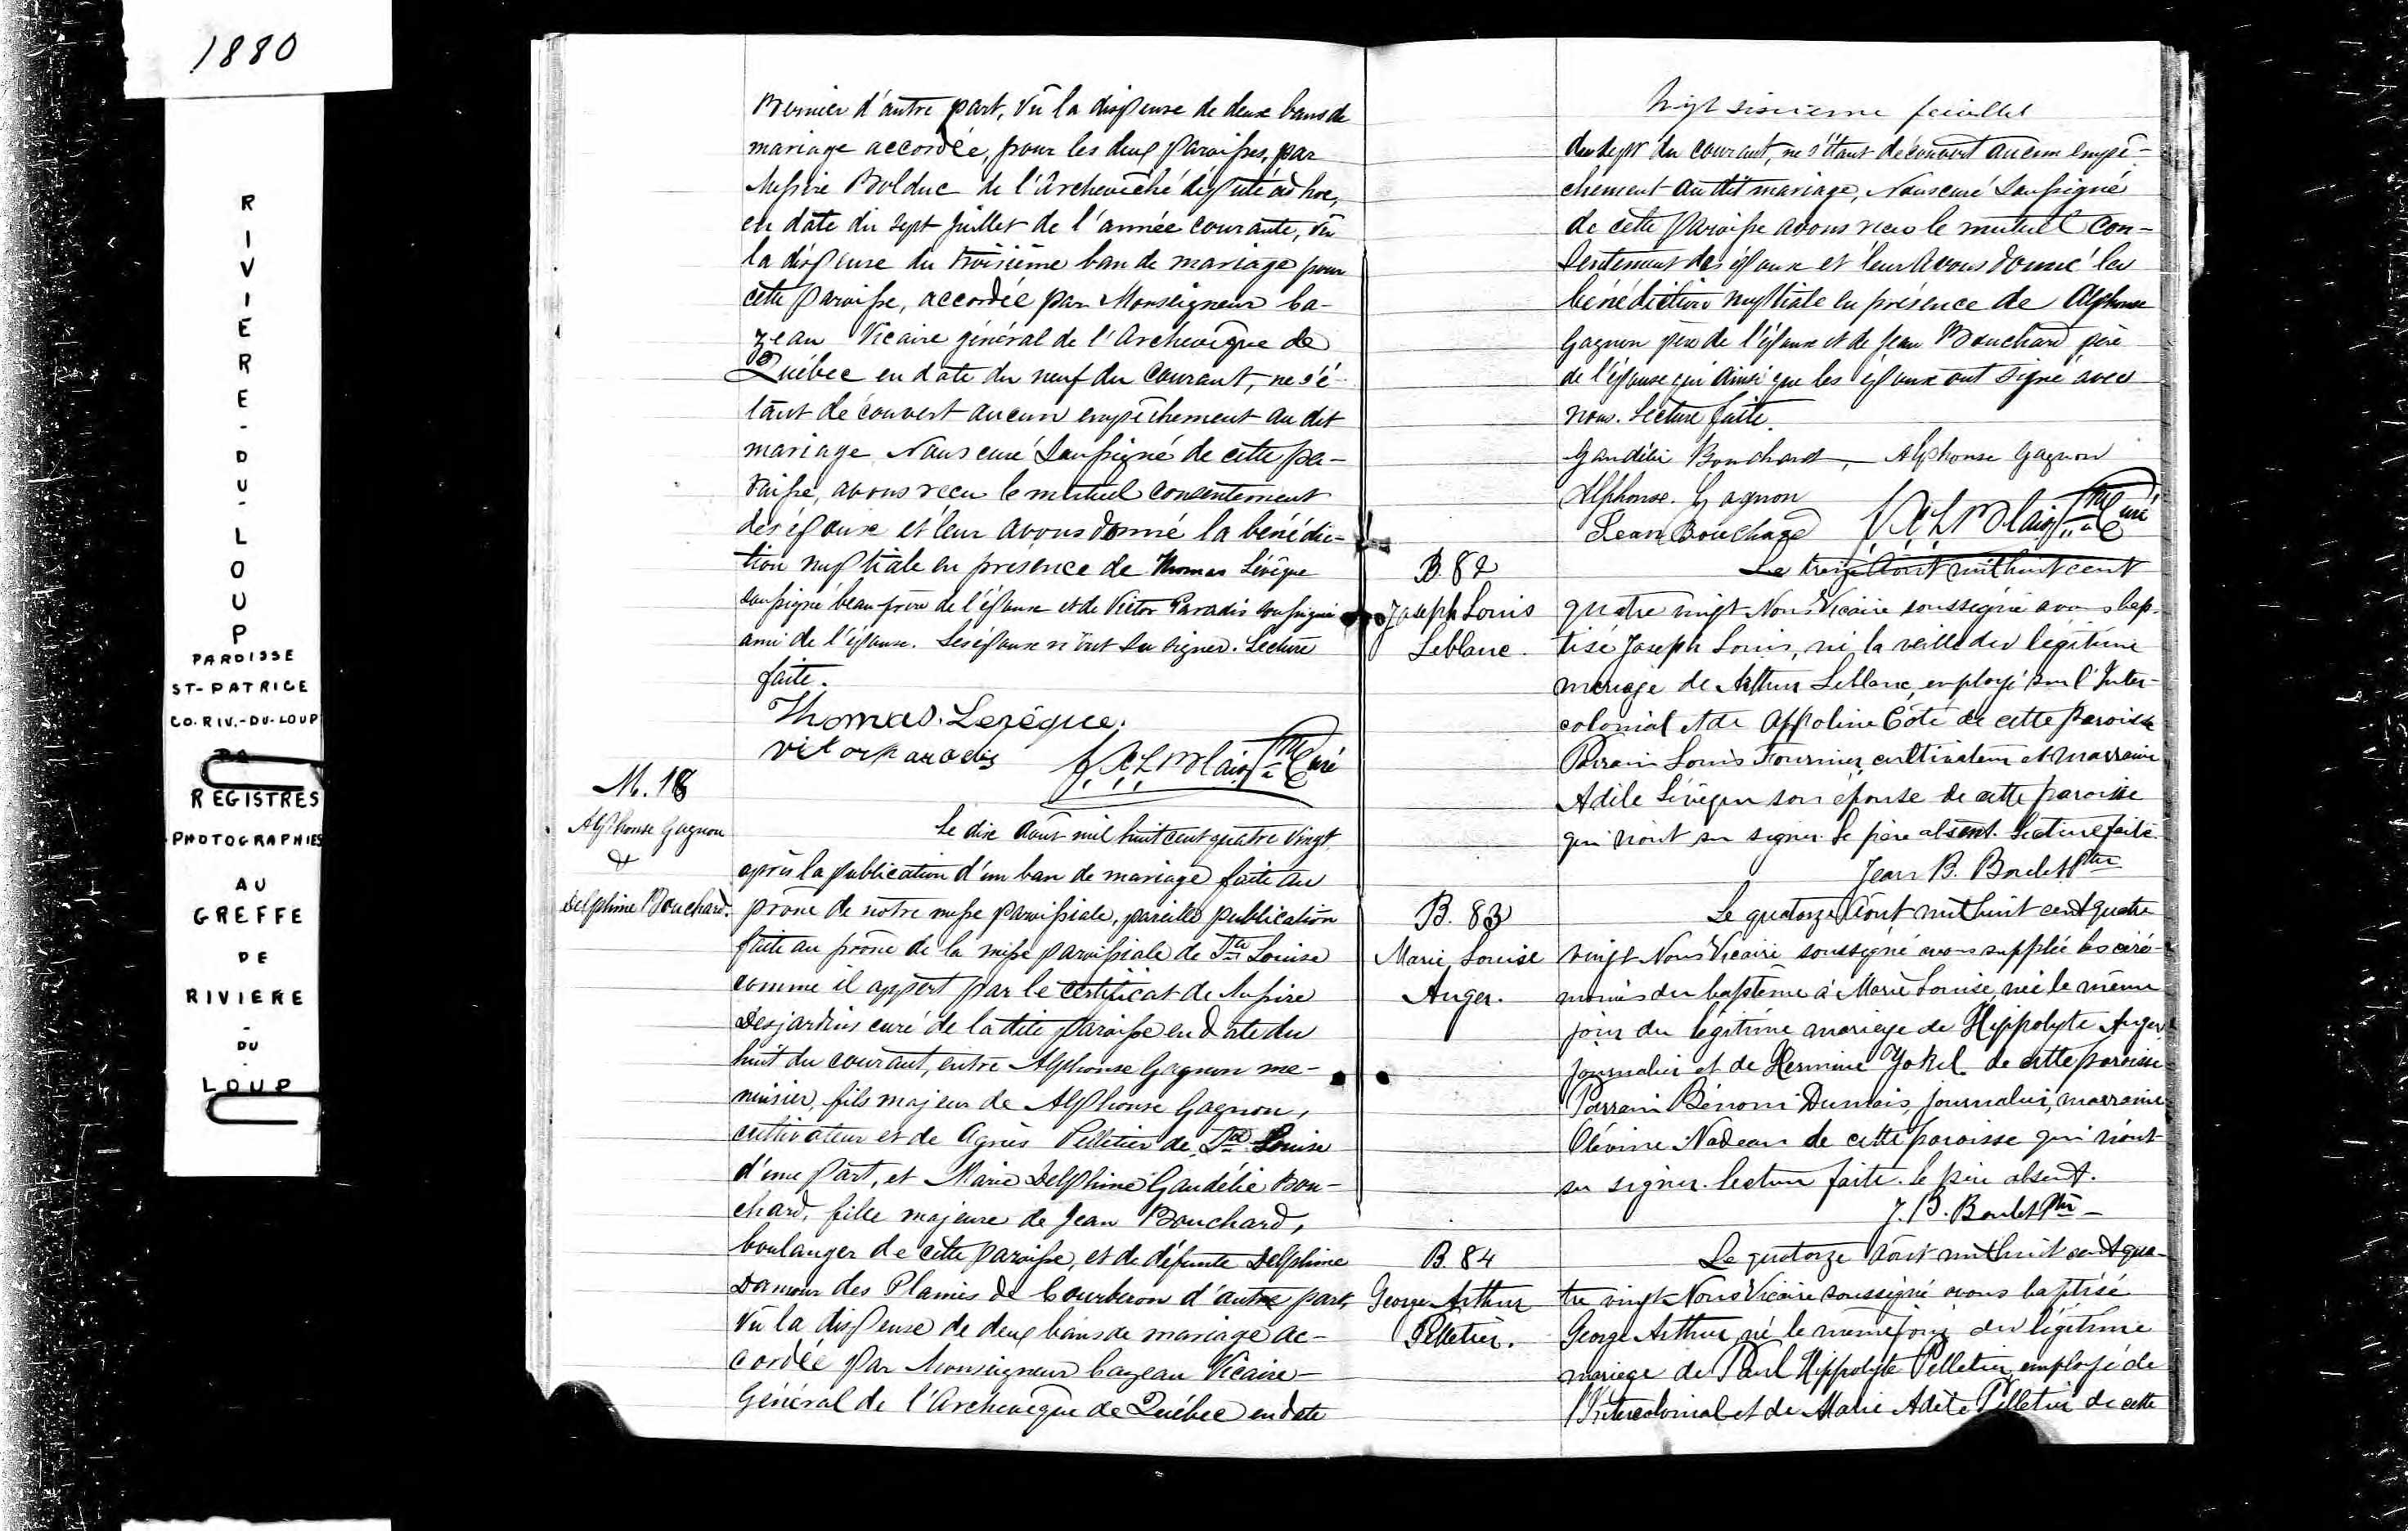 1880
RIVIERE-DU-LOUP
PAROISSE
ST-PATRICE
CO. RIV.-DU-LOUP
REGISTRES
PHOTOGRAPHIES
AU
GREFFE
DE
RIVIERE
-
DU
-
LOUP
d'autre part, Vu la dispense de deux bans de
mariage accordée, pour les deux Paroisses, par
Messire Bolduc de l'Archevêché député ad hoc,
en date du sept Juillet de l'année courante, Vu
la dispense du troisième ban de mariage pour
cette Paroisse, accordée par Monseigneur Ca-
zeau Vicaire général de l'Archevêque de
Québec en date du neuf du courant, ne s'é-
tant découvert aucun empêchement au dit
mariage Nous curé Soussigné de cette pa-
roisse, avons recu le mutuel consentement
des époux et leur avons donné la bénédic-
tion nuptiale en présence de Thomas Lévêque
soussigné beau-frère de l'époux et de Victor Paradis soussigné
ami de l'époux. Les époux n'ont su signer. Lecture
faite.
Thomas. Levêque.
victor Paradis Ptre Curé
M. 18
Alphonse Gagnon
&
Delphine Bouchard.
Le dix Août mil huit cent quatre vingt
après la publication d'un ban de mariage faite au
prône de notre messe paroissiale, pareille publication
faite au prône de la messe paroissiale de Ste Louise
comme il appert par le certificat de Messire
Desjardins curé de la dite Paroisse en date du
huit du courant, entre Alphonse Gagnon me-
nuisier, fils majeur de Alphonse Gagnon,
cultivateur et de Agnès Pelletier de Ste Louise
d'une part, et Marie Delphine Gaudélie Bou-
chard, fille majeure de Jean Bouchard,
boulanger de cette paroisse, et de défunte Delphine
Damour des Plaines de Courberon d'autre part,
Vu la dispense de deux bans de mariage ac-
cordée par Monseigneur Cazeau Vicaire-
Général de l'Archevêque de Québec en date
Vingt sixième feuillet
du sept du courant, ne s'étant découvert aucun empê-
chement au dit mariage, Nous curé Soussigné
de cette Paroisse avons recu le mutuel con-
sentement des époux et leur avons donné la
bénédiction nuptiale en présence de Alphonse
Gagnon père de l'époux et de Jean Bouchard père
de l'épouse qui ainsi que les époux ont signé avec
nous. Lecture faite.
Gaudélie Bouchard, Alphonse Gagnon
Alphonse. Gagnon
Jean Bouchard Ptre Curé
B. 82
Joseph Louis
Leblanc.
Le treize Août mil huit cent
quatre vingt Nous Vicaire soussigné avons bap-
tisé Joseph Louis, né la veille du légitime
mariage de Arthur Leblanc, employé sur l'Inter-
colonial et de Appoline Côté de cette paroisse
Parrain Louis Fournier, cultivateur et marraine
Adèle Lévêque son épouse de cette paroisse
qui n'ont su signer. Le père absent. Lecture faite.
Jean B. Boulet Ptre
B. 83
Marie Louise
Auger.
Le quatorze Août mil huit cent quatre
vingt Nous Vicaire soussigné avons supplée les céré-
monies du baptême à Marie Louise, née le même
jour du légitime mariage de Hippolyte Auger
journalier et de Hermine de cette paroisse
Parrain Bénoni Dumais, journalier, marraine
Olévine Nadeau de cette paroisse qui n'ont
su signer. lecture faite. Le père absent.
J. B. Boulet Ptre
B. 84
George Arthur
Pelletier.
Le quatorze Août mil huit cent qua-
tre vingt Nous Vicaire soussigné avons baptisé
George Arthur, né le même jour du légitime
mariage de Paul Hippolyte Pelletier, employé de
l'Intercolonial et de Marie Adèle Pelletier de cette